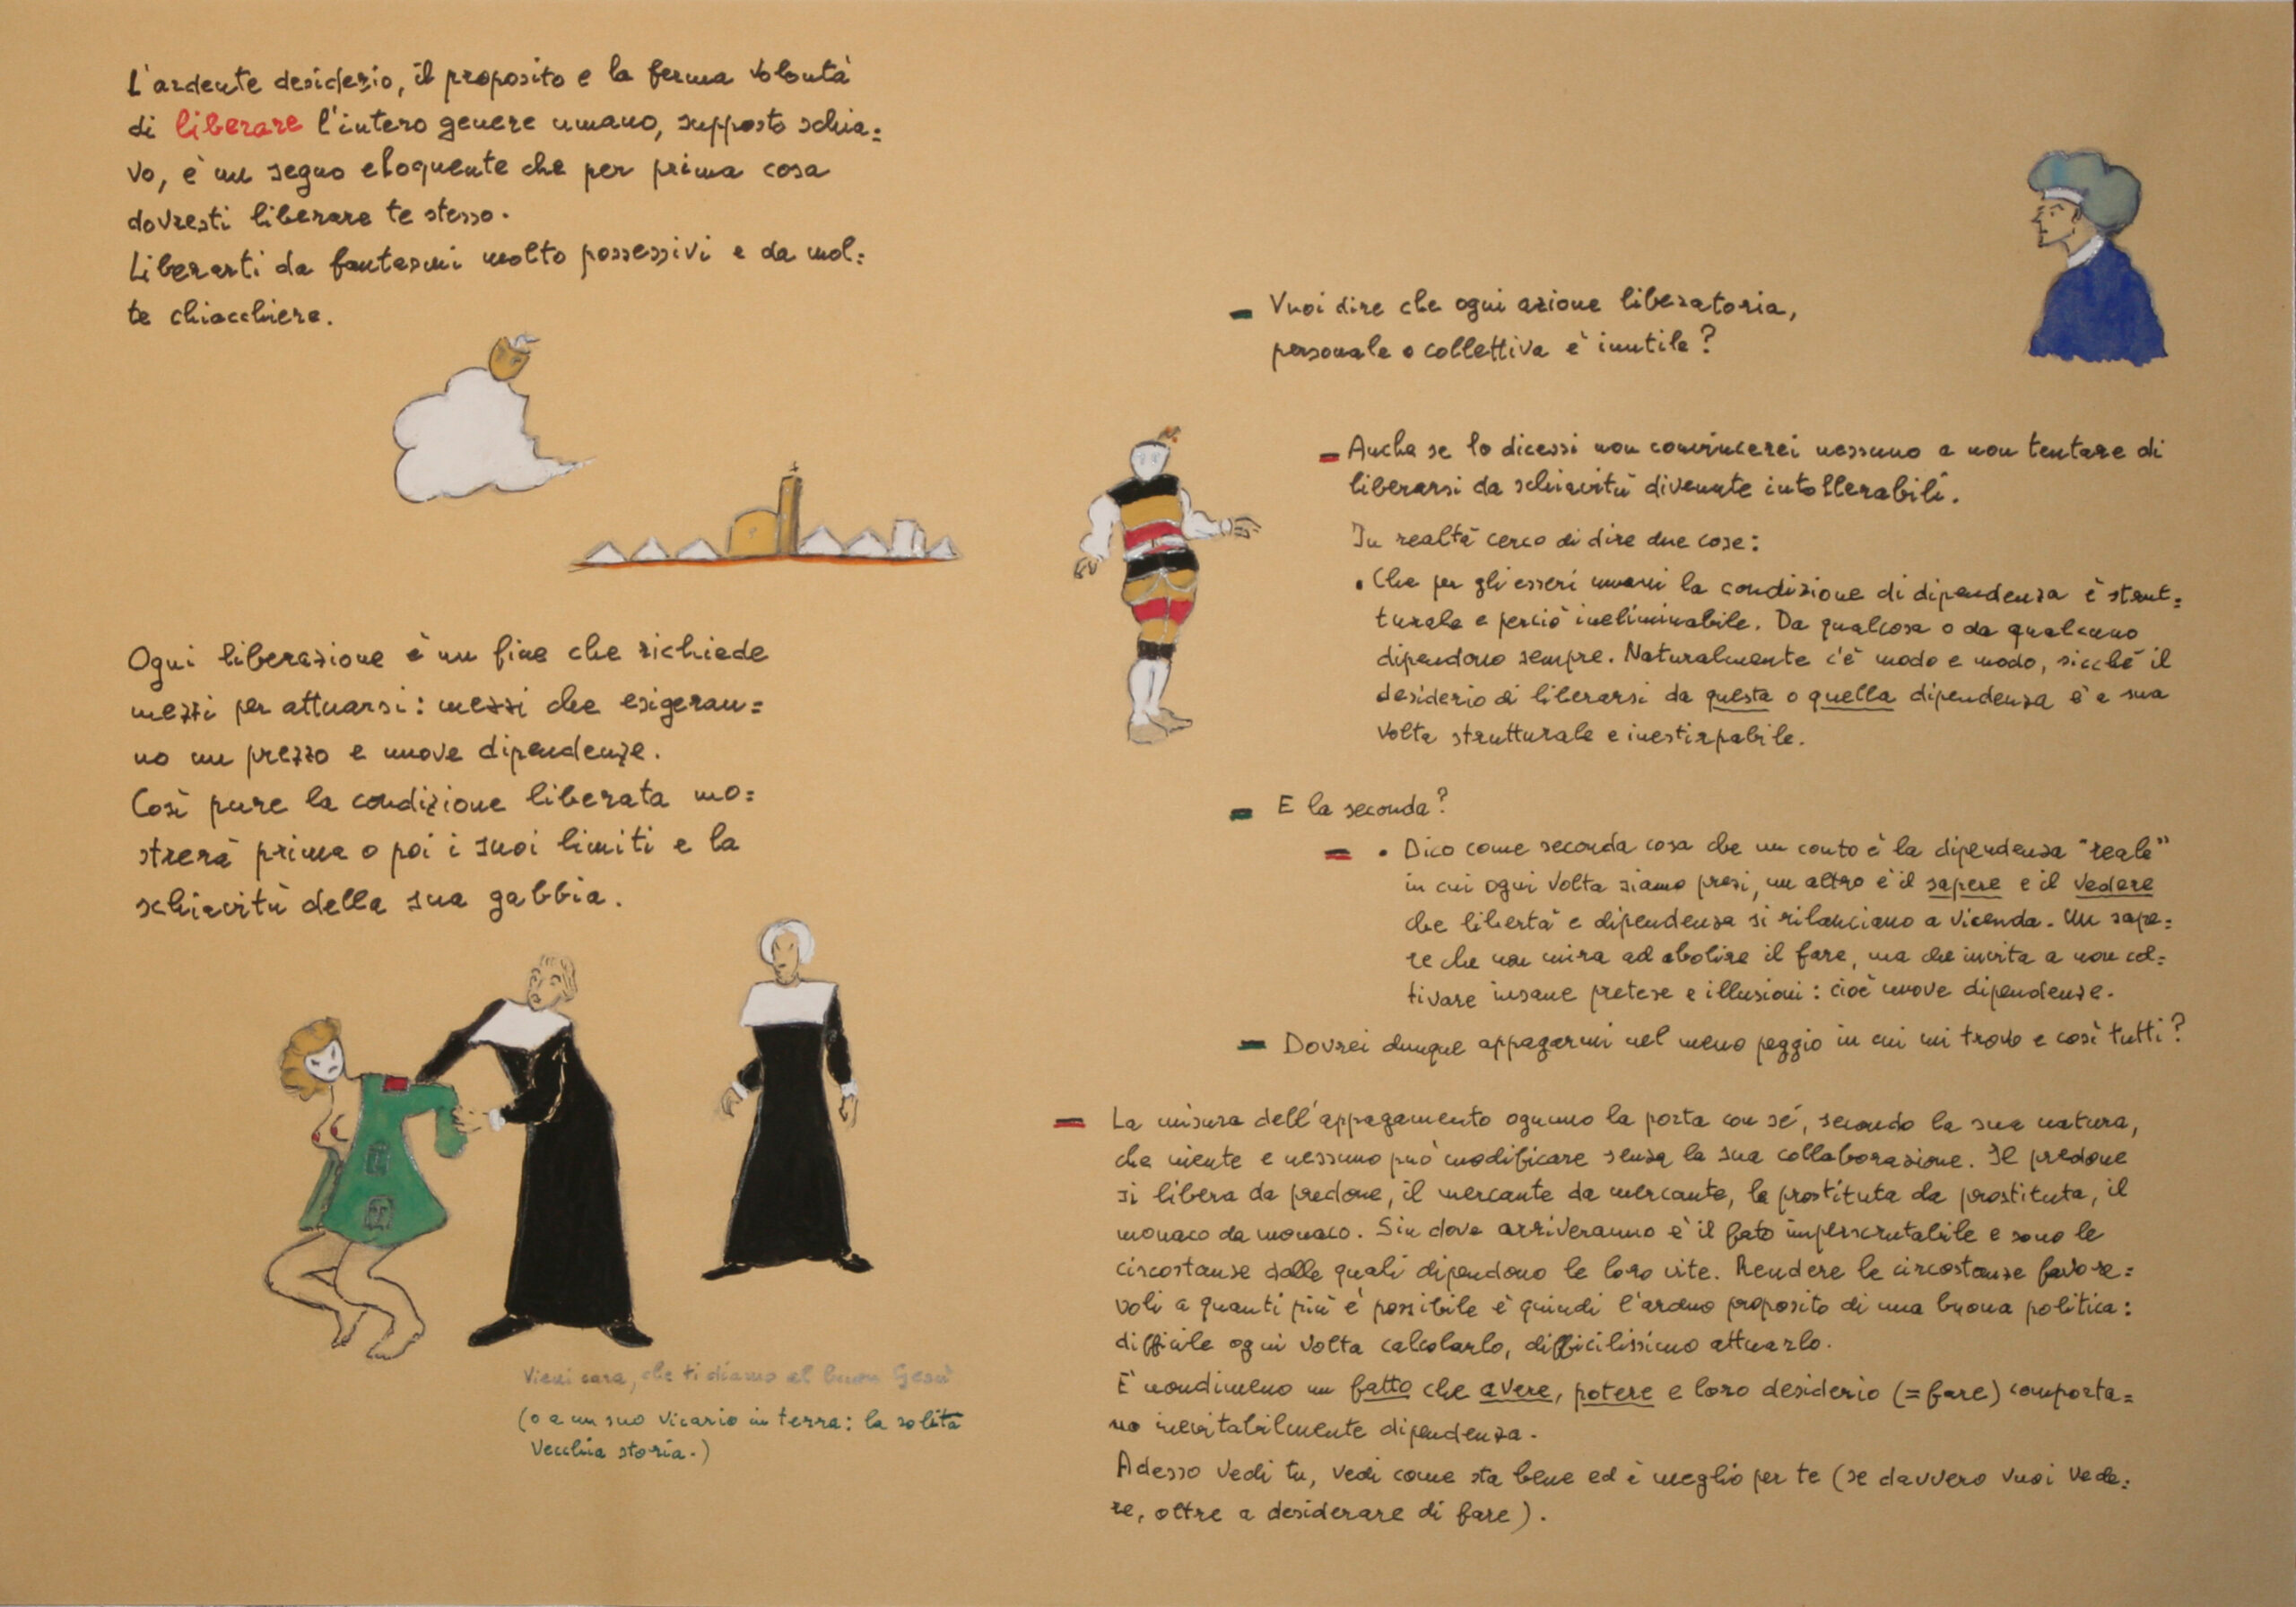 L'ardente desiderio, il proposito e la ferma volontà
di liberare l'intero genere umano, supposto schia=
vo, è un segno eloquente che per prima cosa
dovresti liberare te stesso.
Liberarti da fantasmi molto possessivi e da mol=
te chiacchiere.
Ogni liberazione è un fine che richiede
mezzi per attuarsi: mezzi che esigeran=
no un prezzo e nuove dipendenze.
Così pure la condizione liberata mo=
strerà prima o poi i suoi limiti e la
schiavitù della sua gabbia.
Vieni cara, che ti diamo al buon Gesù
(o a un suo vicario in terra: la solita
vecchia storia.)
– Vuoi dire che ogni azione liberatoria,
personale o collettiva è inutile?
– Anche se lo dicessi non convincerei nessuno a non tentare di
liberarsi da schiavitù divenute intollerabili.
In realtà cerco di dire due cose:
• Che per gli esseri umani la condizione di dipendenza è strut=
turale e perciò ineliminabile. Da qualcosa o da qualcuno
dipendono sempre. Naturalmente c'è modo e modo, sicché il
desiderio di liberarsi da questa o quella dipendenza è a sua
volta strutturale e inestirpabile.
– E la seconda?
– • Dico come seconda cosa che un conto è la dipendenza "reale"
in cui ogni volta siamo presi, un altro è il sapere e il vedere
che libertà e dipendenza si rilanciano a vicenda. Un sape=
re che non mira ad abolire il fare, ma che invita a non col=
tivare insane pretese e illusioni: cioè nuove dipendenze.
– Dovrei dunque appagarmi nel meno peggio in cui mi trovo e così tutti?
– La misura dell'appagamento ognuno la porta con sé, secondo la sua natura,
che niente e nessuno può modificare senza la sua collaborazione. Il predone
si libera da predone, il mercante da mercante, la prostituta da prostituta, il
monaco da monaco. Sin dove arriveranno è il fato imperscrutabile e sono le
circostanze dalle quali dipendono le loro vite. Rendere le circostanze favore=
voli a quanti più è possibile è quindi l'arduo proposito di una buona politica:
difficile ogni volta calcolarlo, difficilissimo attuarlo.
E' nondimeno un fatto che avere, potere e loro desiderio (= fare) comporta=
no inevitabilmente dipendenza.
Adesso vedi tu, vedi come sta bene ed è meglio per te (se davvero vuoi vede=
re, oltre a desiderare di fare).